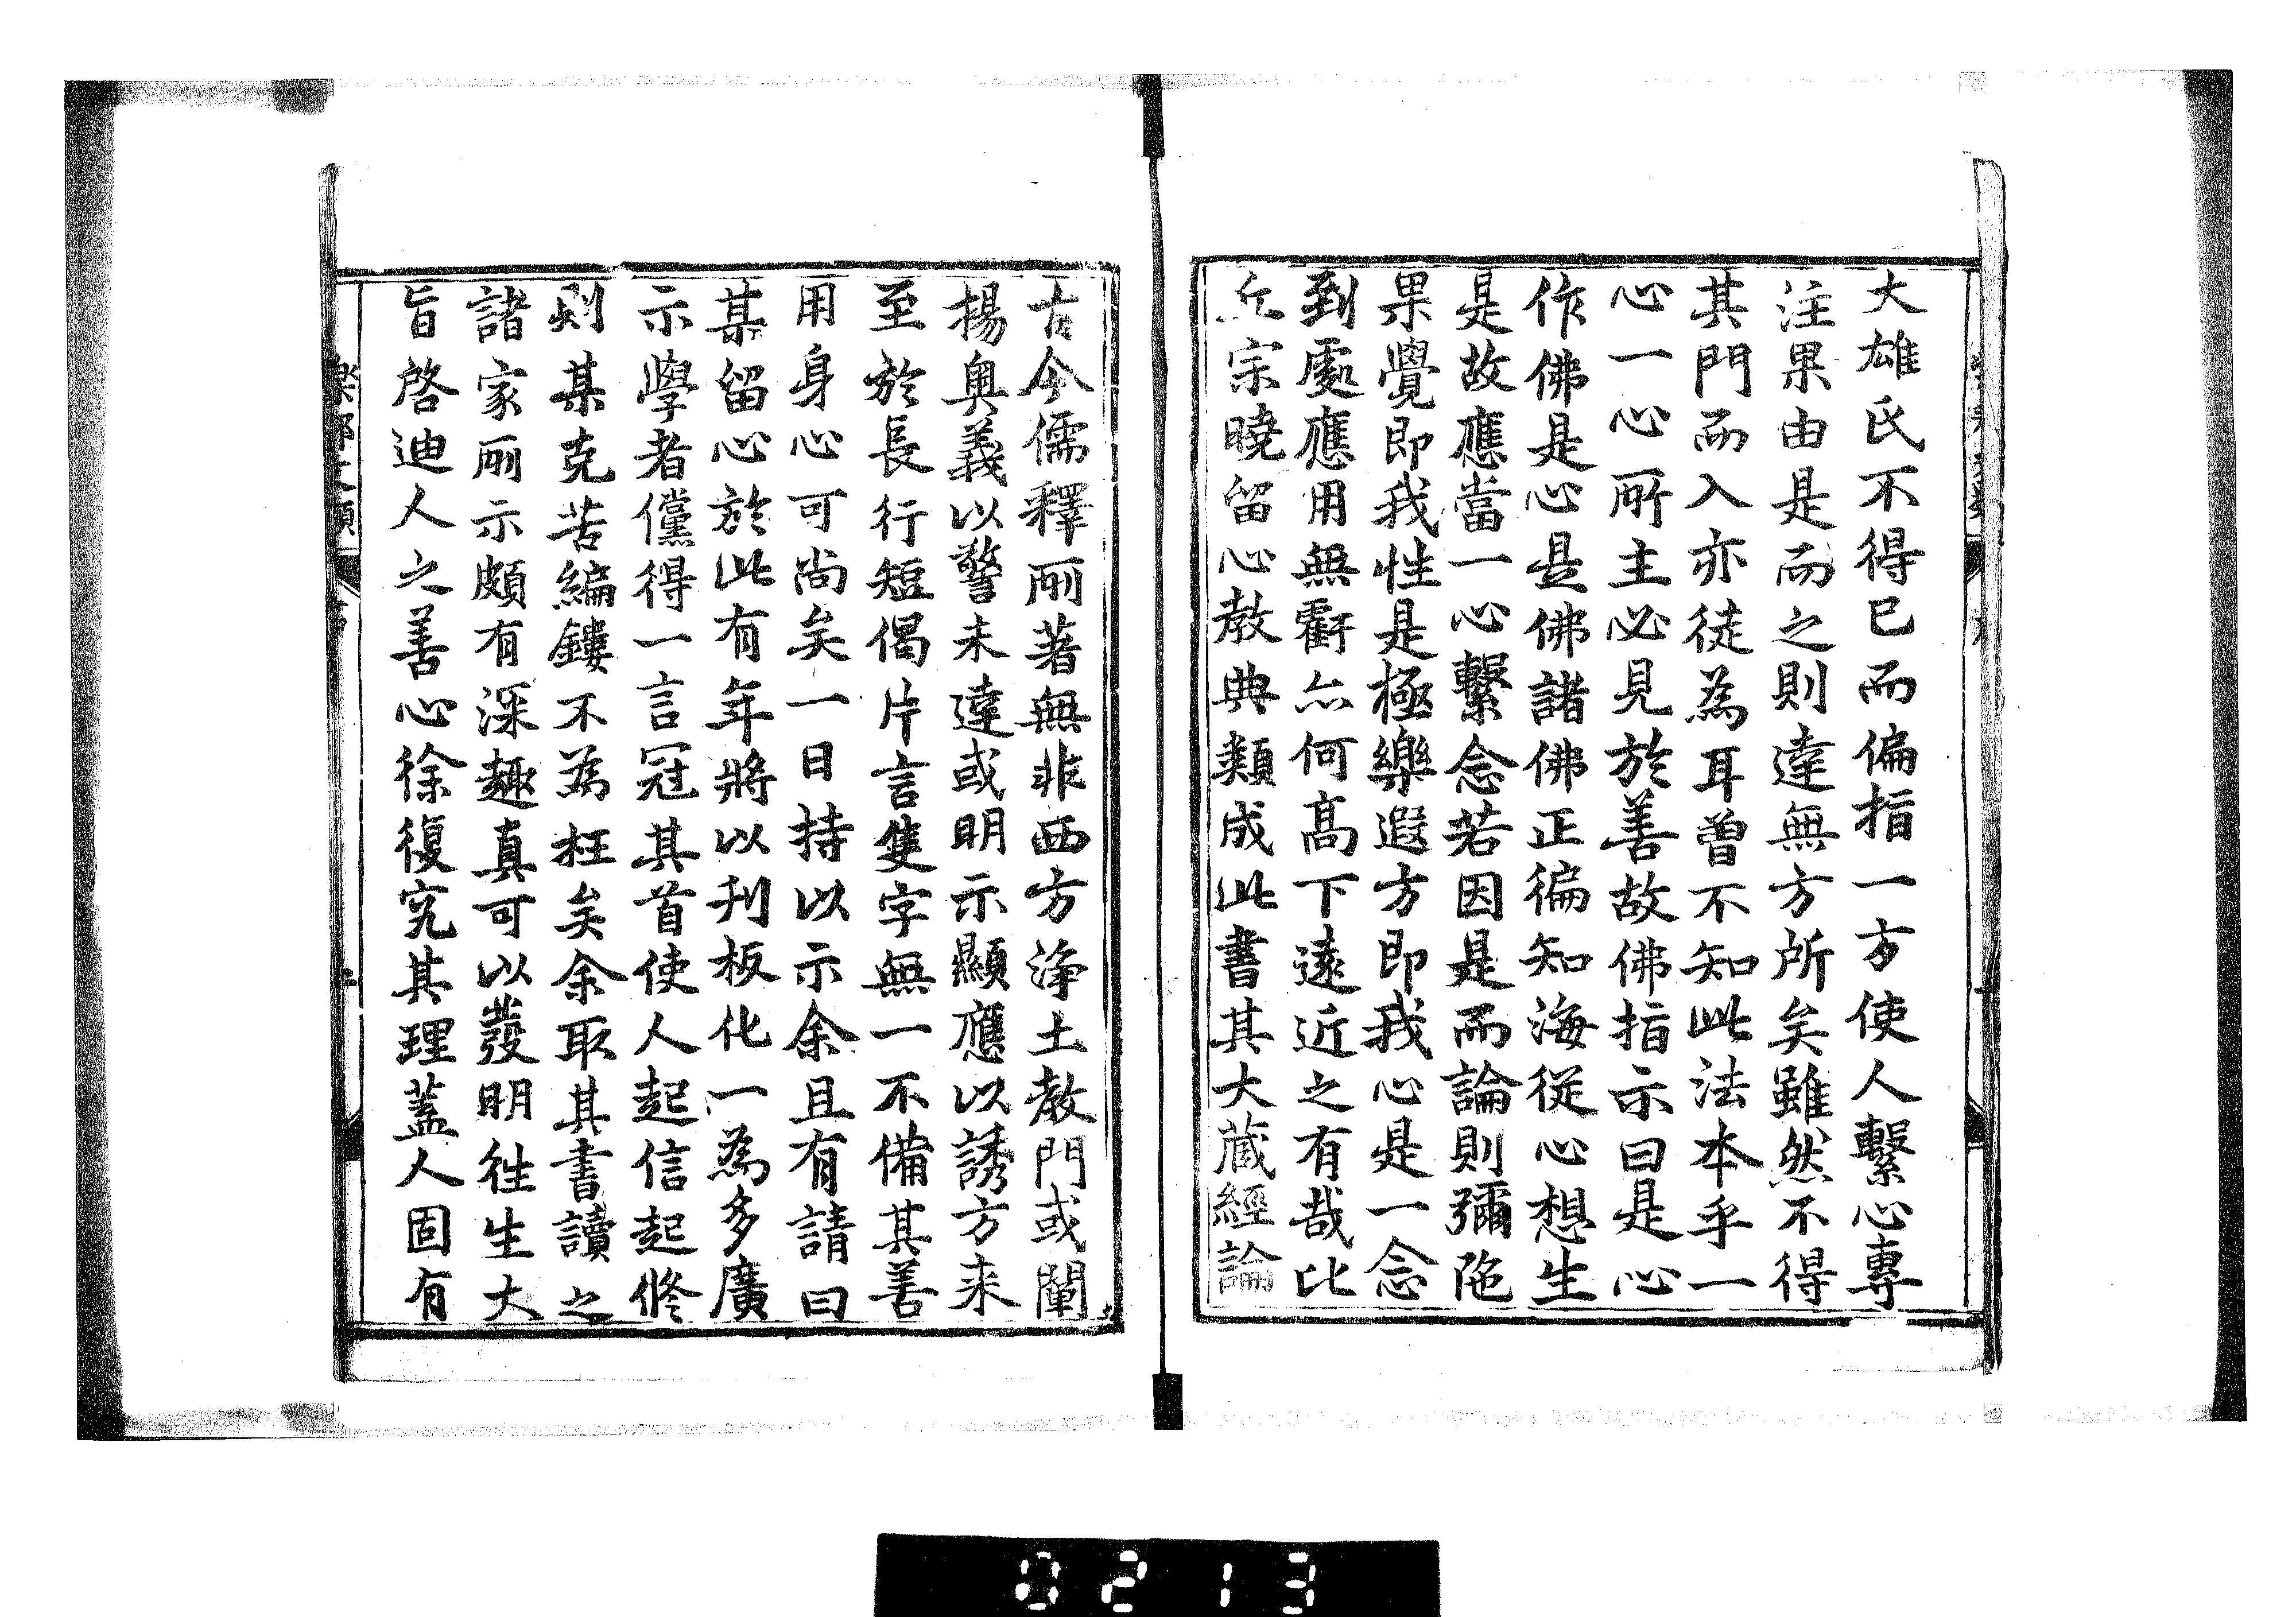 大雄氏不得已而偏指一方使人繫心專
注果由是而之則達無方所矣雖然不得
其門而入亦徒為耳曾不知此法本乎一
心一心所主必見於善故佛指示曰是心
作佛是心是佛諸佛正徧知海從心想生
是故應當一心繫念若因是而論則彌陁
果覺即我性是極樂遐方即我心是一念
到處應用無虧亦何高下遠近之有哉比
丘宗曉留心教典類成此書其大蔵經論
古今儒釋所著無非西方淨土教門或闡
揚奧義以警未達或明示顯應以誘方来
至於長行短偈片言隻字無一不備其善
用身心可尚矣一日持以示余且有請曰
某留心於此有年將以刋板化一為多廣
示學者儻得一言冠其首使人起信起修
則某克苦編鏤不為枉矣余取其書讀之
諸家所示頗有深趣真可以發明徃生大
旨啓迪人之善心徐復究其理蓋人固有
樂邦文類
0213